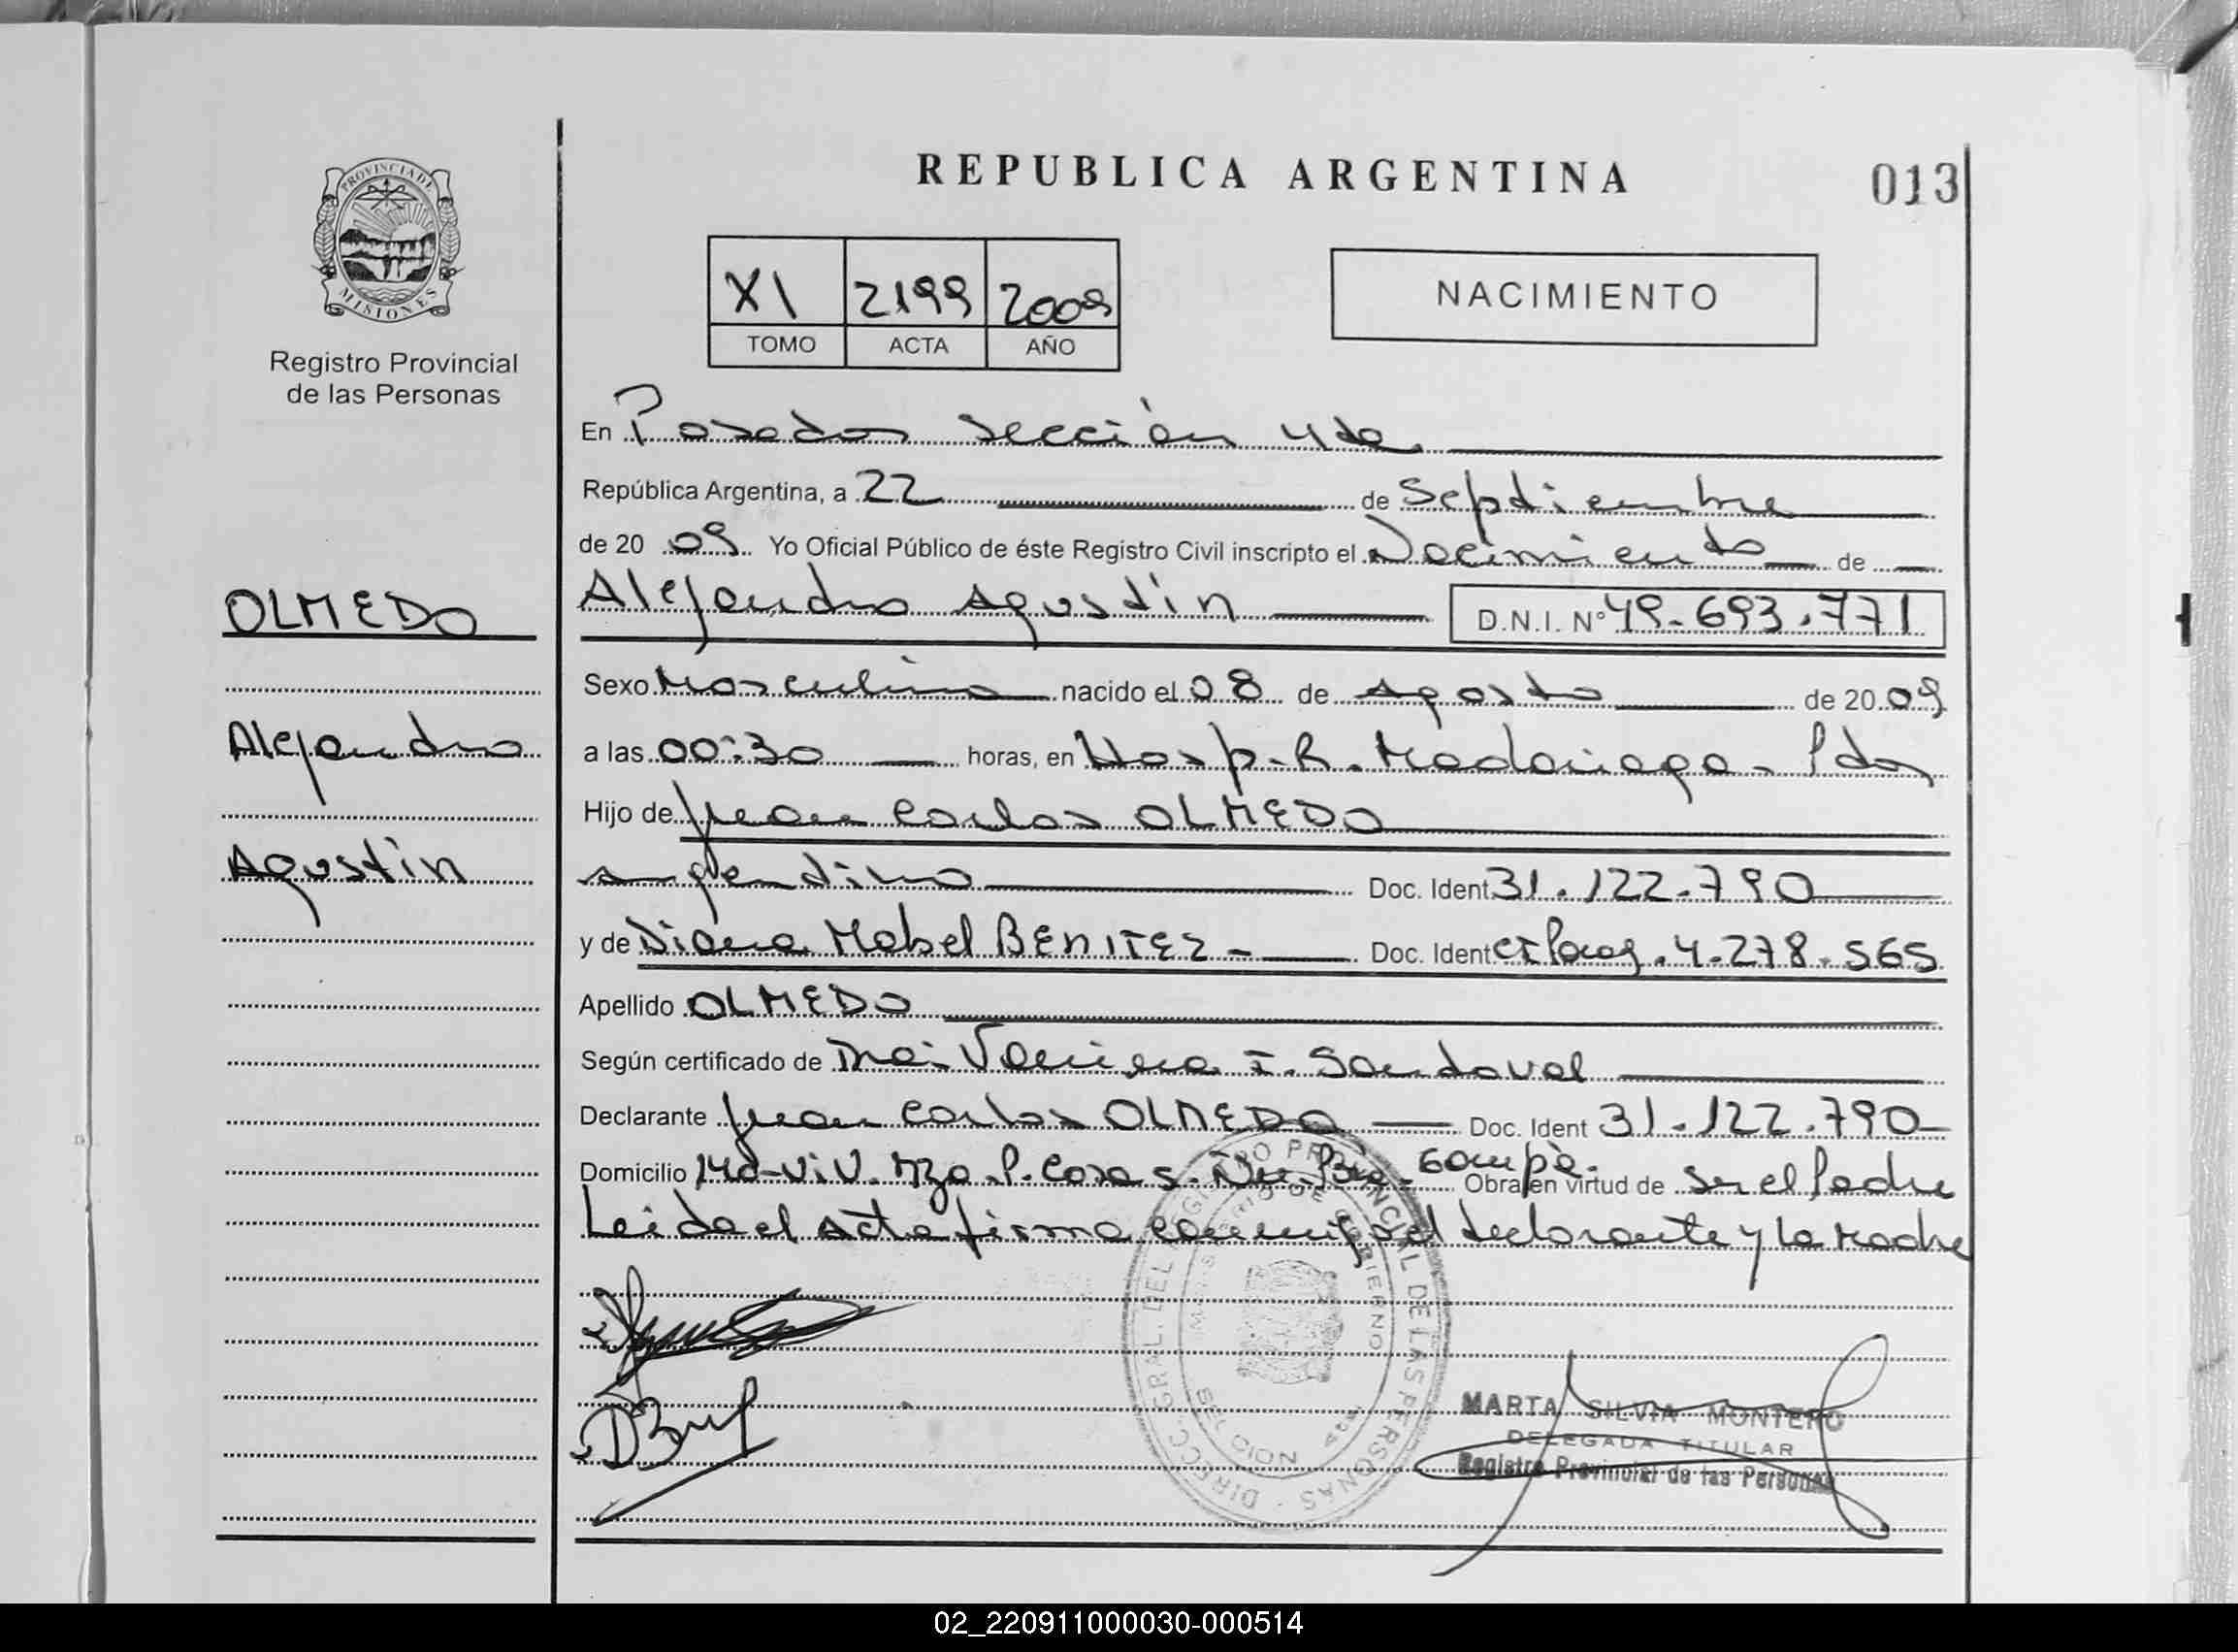 REPUBLICA ARGENTINA
013
PROVINCIA DE
MISIONES
Registro Provincial
de las Personas
XI 2199 2009
TOMO ACTA AÑO
NACIMIENTO
En Posadas sección 4ta
República Argentina, a 22 de Septiembre
de 20 09 Yo Oficial Público de éste Registro Civil inscripto el Nacimiento de
OLMEDO
Alejandro Agustín D.N.I. Nº 49.693.771
Sexo Masculino nacido el 08 de Agosto de 20 09
Alejandro
a las 00:30 horas, en Hosp. R. Madariaga - Pdas
Hijo de Juan Carlos OLMEDO
Agustín
argentino Doc. Ident 31.122.790
y de Diana Mabel BENITEZ - Doc. Ident CI Parag. 4.278.565
Apellido OLMEDO
Según certificado de Dra. Vanina I. Sandoval
Declarante Juan Carlos OLMEDO Doc. Ident 31.122.790
Domicilio 140-Viv. Mza. P. Casa 5. Obra en virtud de ser el Padre
Leida el Acta firma conmigo el declarante y la Madre
DIRECC. GRAL. DEL REGISTRO PROVINCIAL DE LAS PERSONAS
MINISTERIO DE GOBIERNO
MARTA SILVIA MONTERO
DELEGADA TITULAR
Registro Provincial de las Personas
02_220911000030-000514